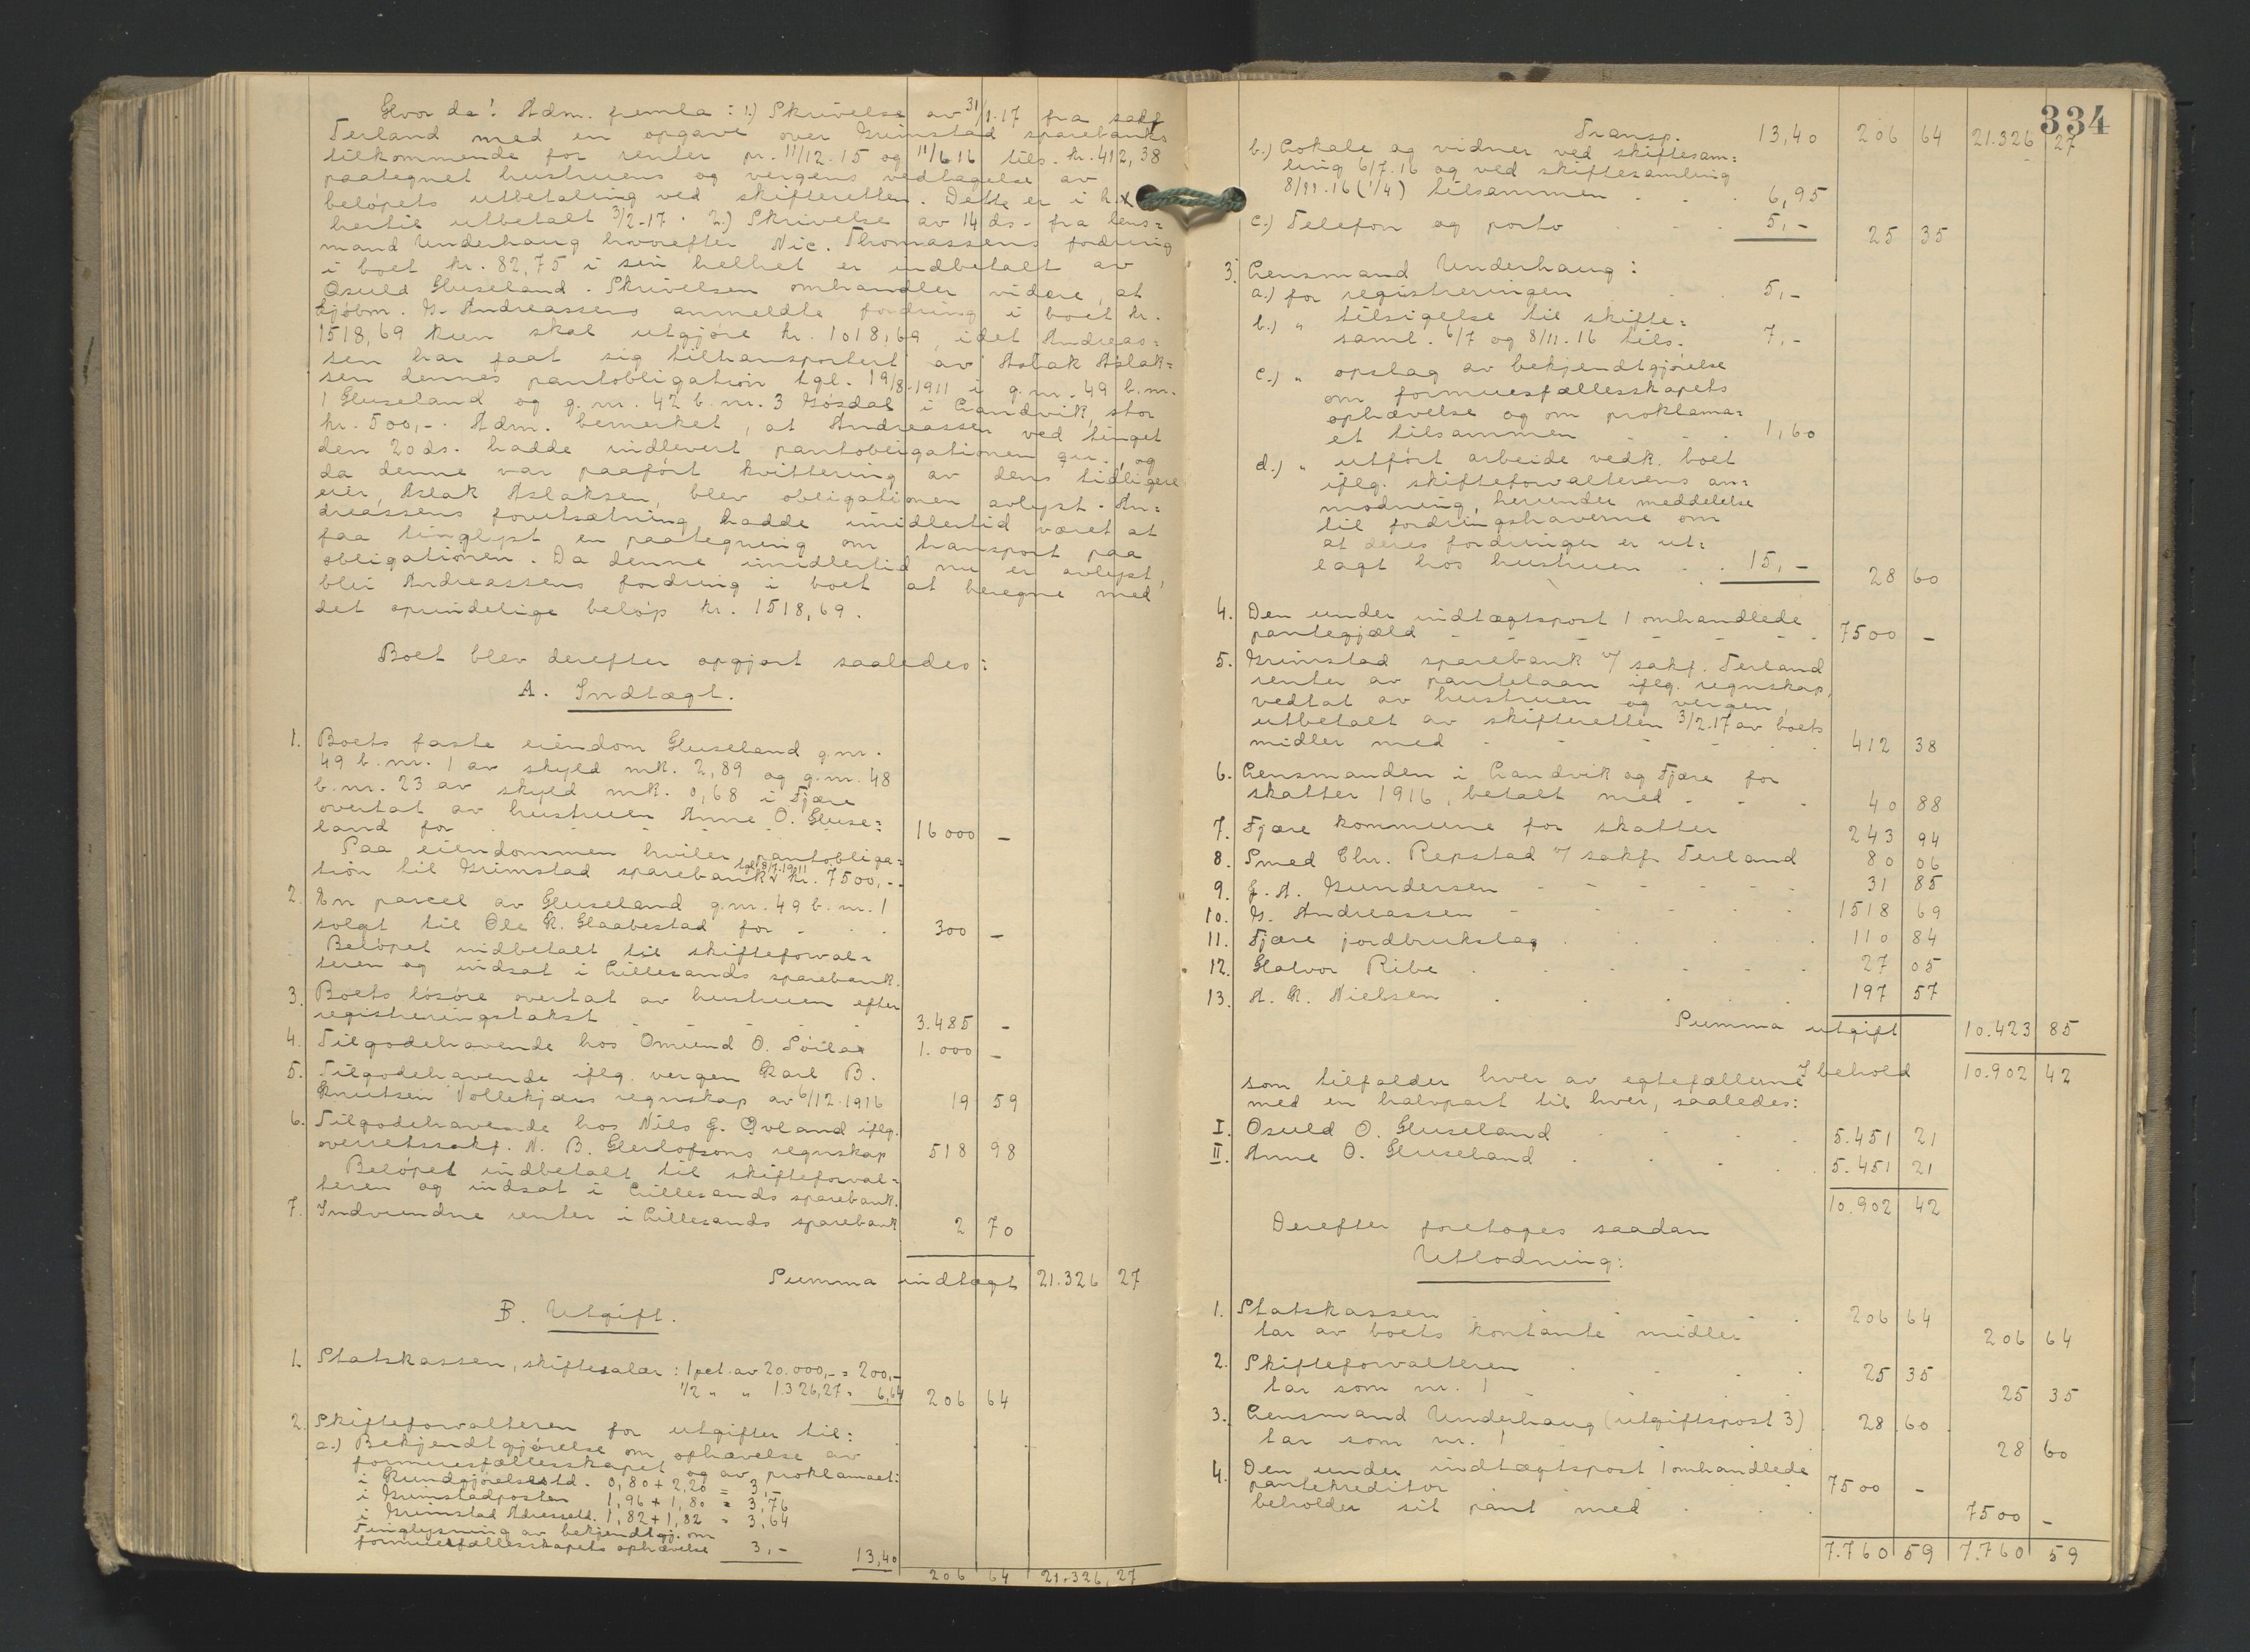 Hvor da! Adm. fremla: 1.) Skrivelse av 31/1.17 fra sakf
Terland med en opgave over Grimstad sparebanks
tilkommende for renter pr. 11/12.15 og 11/6.16 tils. kr. 412,38
paategnet hustruens og vergens vedtagelse av
beløpets utbetaling ved skifteretten. Dette er i h.
hertil utbetalt 3/2-17. 2.) Skrivelse av 14 ds. fra lens=
mand Underhaug hvorefter Nic. Thomassens fordring
i boet kr. 82,75 i sin helhet er indbetalt av
Osuld Huseland. Skrivelsen omhandler videre, at
kjøbm. G. Andreassens anmeldte fordring i boet kr.
1518,69 kun skal utgjøre kr. 1018,69, idet Andreas=
sen har faat sig tiltransportert av Aslak Aslak=
sen dennes pantobligation tgl. 19/8-1911 i g.nr. 49 b.nr.
1 Huseland og g.nr. 42 b.nr. 3 Gösdal i Landvik, stor
kr. 500,-. Adm. bemerket, at Andreassen ved tinget
den 20 ds. hadde indlevert pantobligationen qu., og
da denne var paaført kvittering av dens tidligere
eier, Aslak Aslaksen, blev obligationen avlyst. An=
dreassens forutsætning hadde imidlertid været at
faa tinglyst en paategning om transport paa
obligationen. Da denne imidlertid nu er avlyst,
blir Andreassens fordring i boet at beregne med
det oprindelige beløp kr. 1518,69.
Boet blev derefter opgjort saaledes:
A. Indtægt.
1. Boets faste eiendom Huseland g.nr.
49 b.nr. 1 av skyld mk. 2,89 og g.nr. 48
b.nr. 23 av skyld mk. 0,68 i Fjære
overtat av hustruen Anne O. Huse=
land for 16000 -
Paa eiendommen hviler pantobliga=
tion til Grimstad sparebank tgl. 18/7.1911 kr. 7500,-.
2. En parcel av Huseland g.nr. 49 b.nr. 1
solgt til Ole K. Haabestad for 300 -
Beløpet indbetalt til skifteforval=
teren og indsat i Lillesands sparebank.
3. Boets løsøre overtat av hustruen efter
registreringstakst 3.485 -
4. Tilgodehavende hos Omund O. 1.000 -
5. Tilgodehavende iflg. vergen Karl B.
Knutsen Vollekjærs regnskap av 6/12.1916 19 59
6. Tilgodehavende hos Nils J. Øvland iflg.
overretssakf. N. B. Herlofsons regnskap 518 98
Beløpet indbetalt til skifteforval=
teren og indsat i Lillesands sparebank.
7. Indvundne renter i Lillesands sparebank 2 70
Summa indtægt 21.326 27
B. Utgift.
1. Statskassen, skiftesalær: 1 pct. av 20.000,- = 200,-
1/2 " " 1.326,27 = 6,64 206 64
2. Skifteforvalteren for utgifter til:
a.) Bekjendtgjørelse om ophævelse av
formuesfællesskapet og av proklamaet:
i Kundgjørelsestd. 0,80 + 2,20 = 3,-
i Grimstadposten 1,96 + 1,80 = 3,76
i Grimstad Adressetd. 1,82 + 1,82 = 3,64
Tinglysning av bekjendtgj. om
formuesfællesskapets ophævelse 3,- 13,40
206 64 21.326,27
334
Transp. 13,40 206 64 21.326 27
b.) Lokale og vidner ved skiftesam=
ling 6/7.16 og ved skiftesamling
8/11.16 (1/4) tilsammen 6,95
c.) Telefon og porto 5,- 25 35
3. Lensmand Underhaug:
a.) for registreringen 5,-
b.) " tilsigelse til skifte=
saml. 6/7 og 8/11.16 tils. 7,-
c.) " opslag av bekjendtgjørelse
om formuesfællesskapets
ophævelse og om proklama=
et tilsammen 1,60
d.) " utført arbeide vedk. boet
iflg. skifteforvalterens an=
modning, herunder meddelelse
til fordringshaverne om
at deres fordringer er ut=
lagt hos hustruen 15,- 28 60
4. Den under indtægtspost 1 omhandlede
pantegjæld 7500 -
5. Grimstad sparebank v/ sakf. Terland
renter av pantelaan iflg. regnskap,
vedtat av hustruen og vergen,
utbetalt av skifteretten 3/2.17 av boets
midler med 412 38
6. Lensmanden i Landvik og Fjære for
skatter 1916, betalt med 40 88
7. Fjære kommune for skatter 243 94
8. Smed Chr. Repstad v/ sakf. Terland 80 06
9. J. A. Gundersen 31 85
10. G. Andreassen 1518 69
11. Fjære jordbrukslag 110 84
12. Halvor Ribe 27 05
13. A. K. Nielsen 197 57
Summa utgift 10.423 85
I behold 10.902 42
som tilfalder hver av egtefællerne
med en halvpart til hver, saaledes:
I. Osuld O. Huseland 5.451 21
II. Anne O. Huseland 5.451 21
10.902 42
Derefter foretoges saadan
Utlodning:
1. Statskassen 206 64
tar av boets kontante midler 206 64
2. Skifteforvalteren 25 35
tar som nr. 1 25 35
3. Lensmand Underhaug (utgiftspost 3) 28 60
tar som nr. 1 28 60
4. Den under indtægtspost 1 omhandlede
pantekreditor 7500 -
beholder sit pant med 7500 -
7.760 59 7.760 59